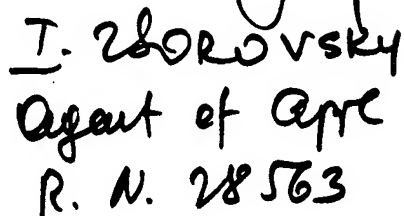 I. ZBOROVSKY
Agent of Appl
R. N. 28563